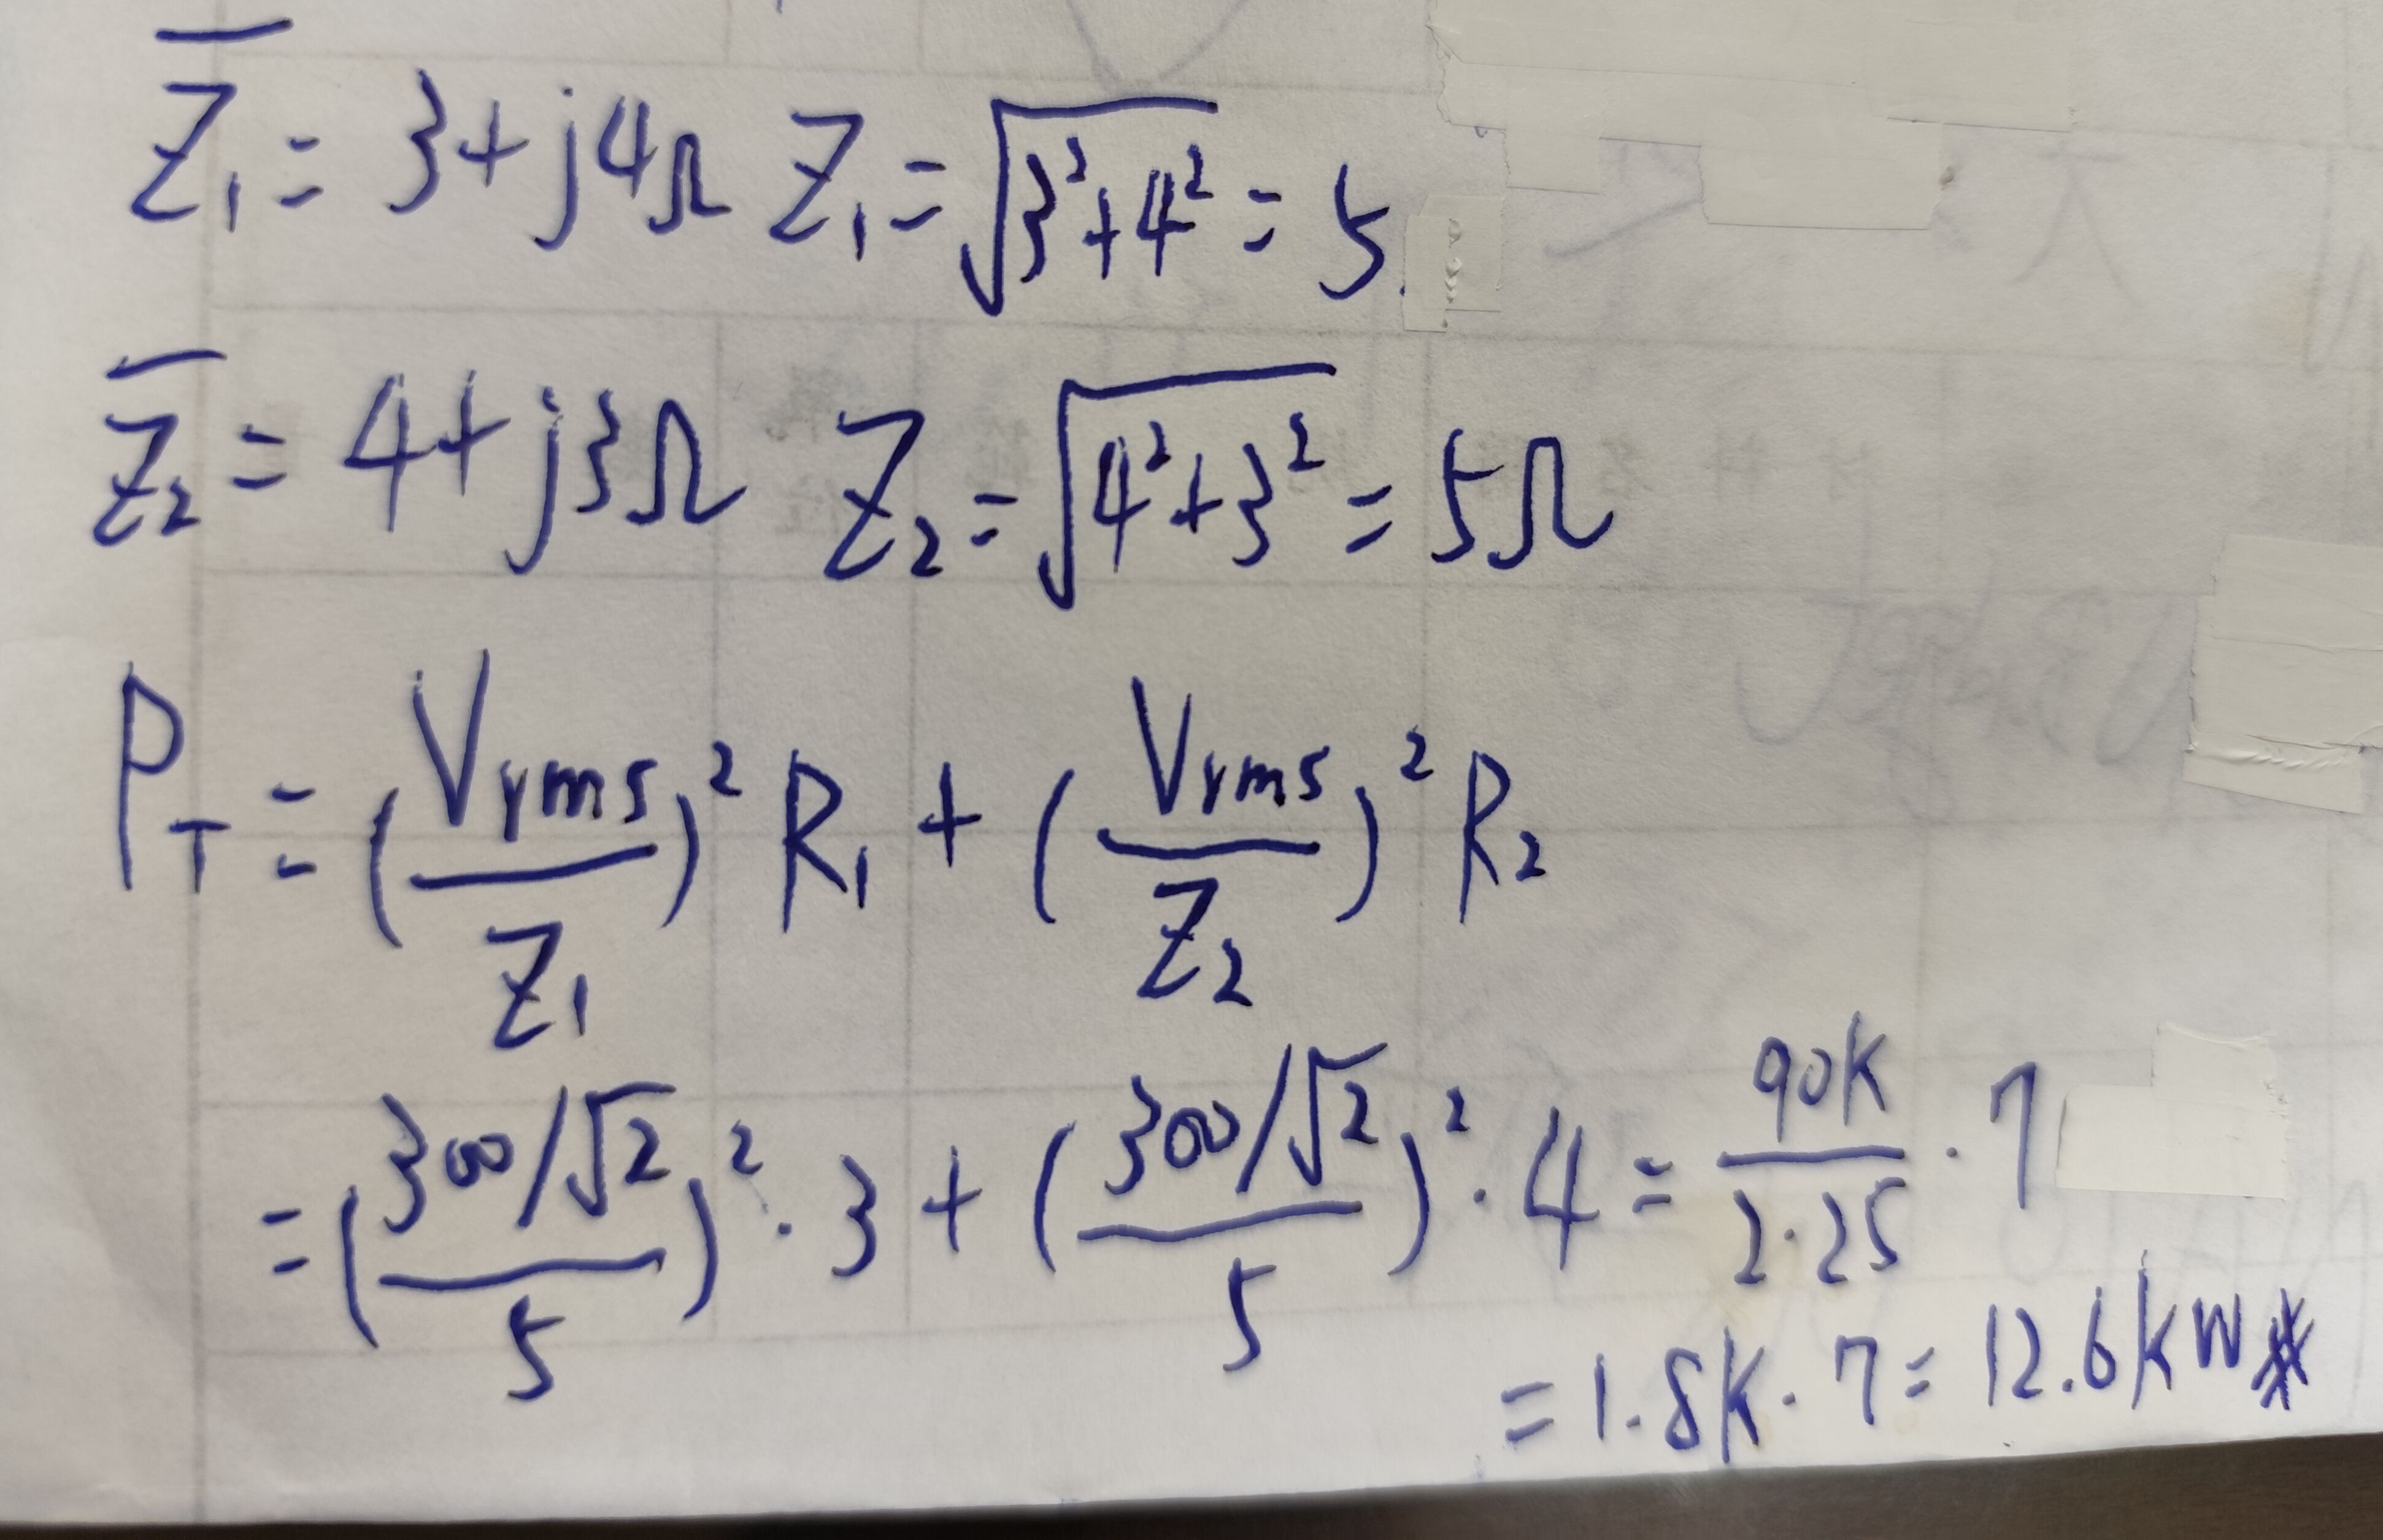 Z̅₁ = 3 + j4Ω Z₁ = √(3²+4²) = 5
Z̅₂ = 4 + j3Ω Z₂ = √(4²+3²) = 5Ω
P_T = (Vrms/Z₁)² R₁ + (Vrms/Z₂)² R₂
= ((300/√2)/5)² · 3 + ((300/√2)/5)² · 4 = 90K/(2·25) · 7
= 1.8K · 7 = 12.6kW